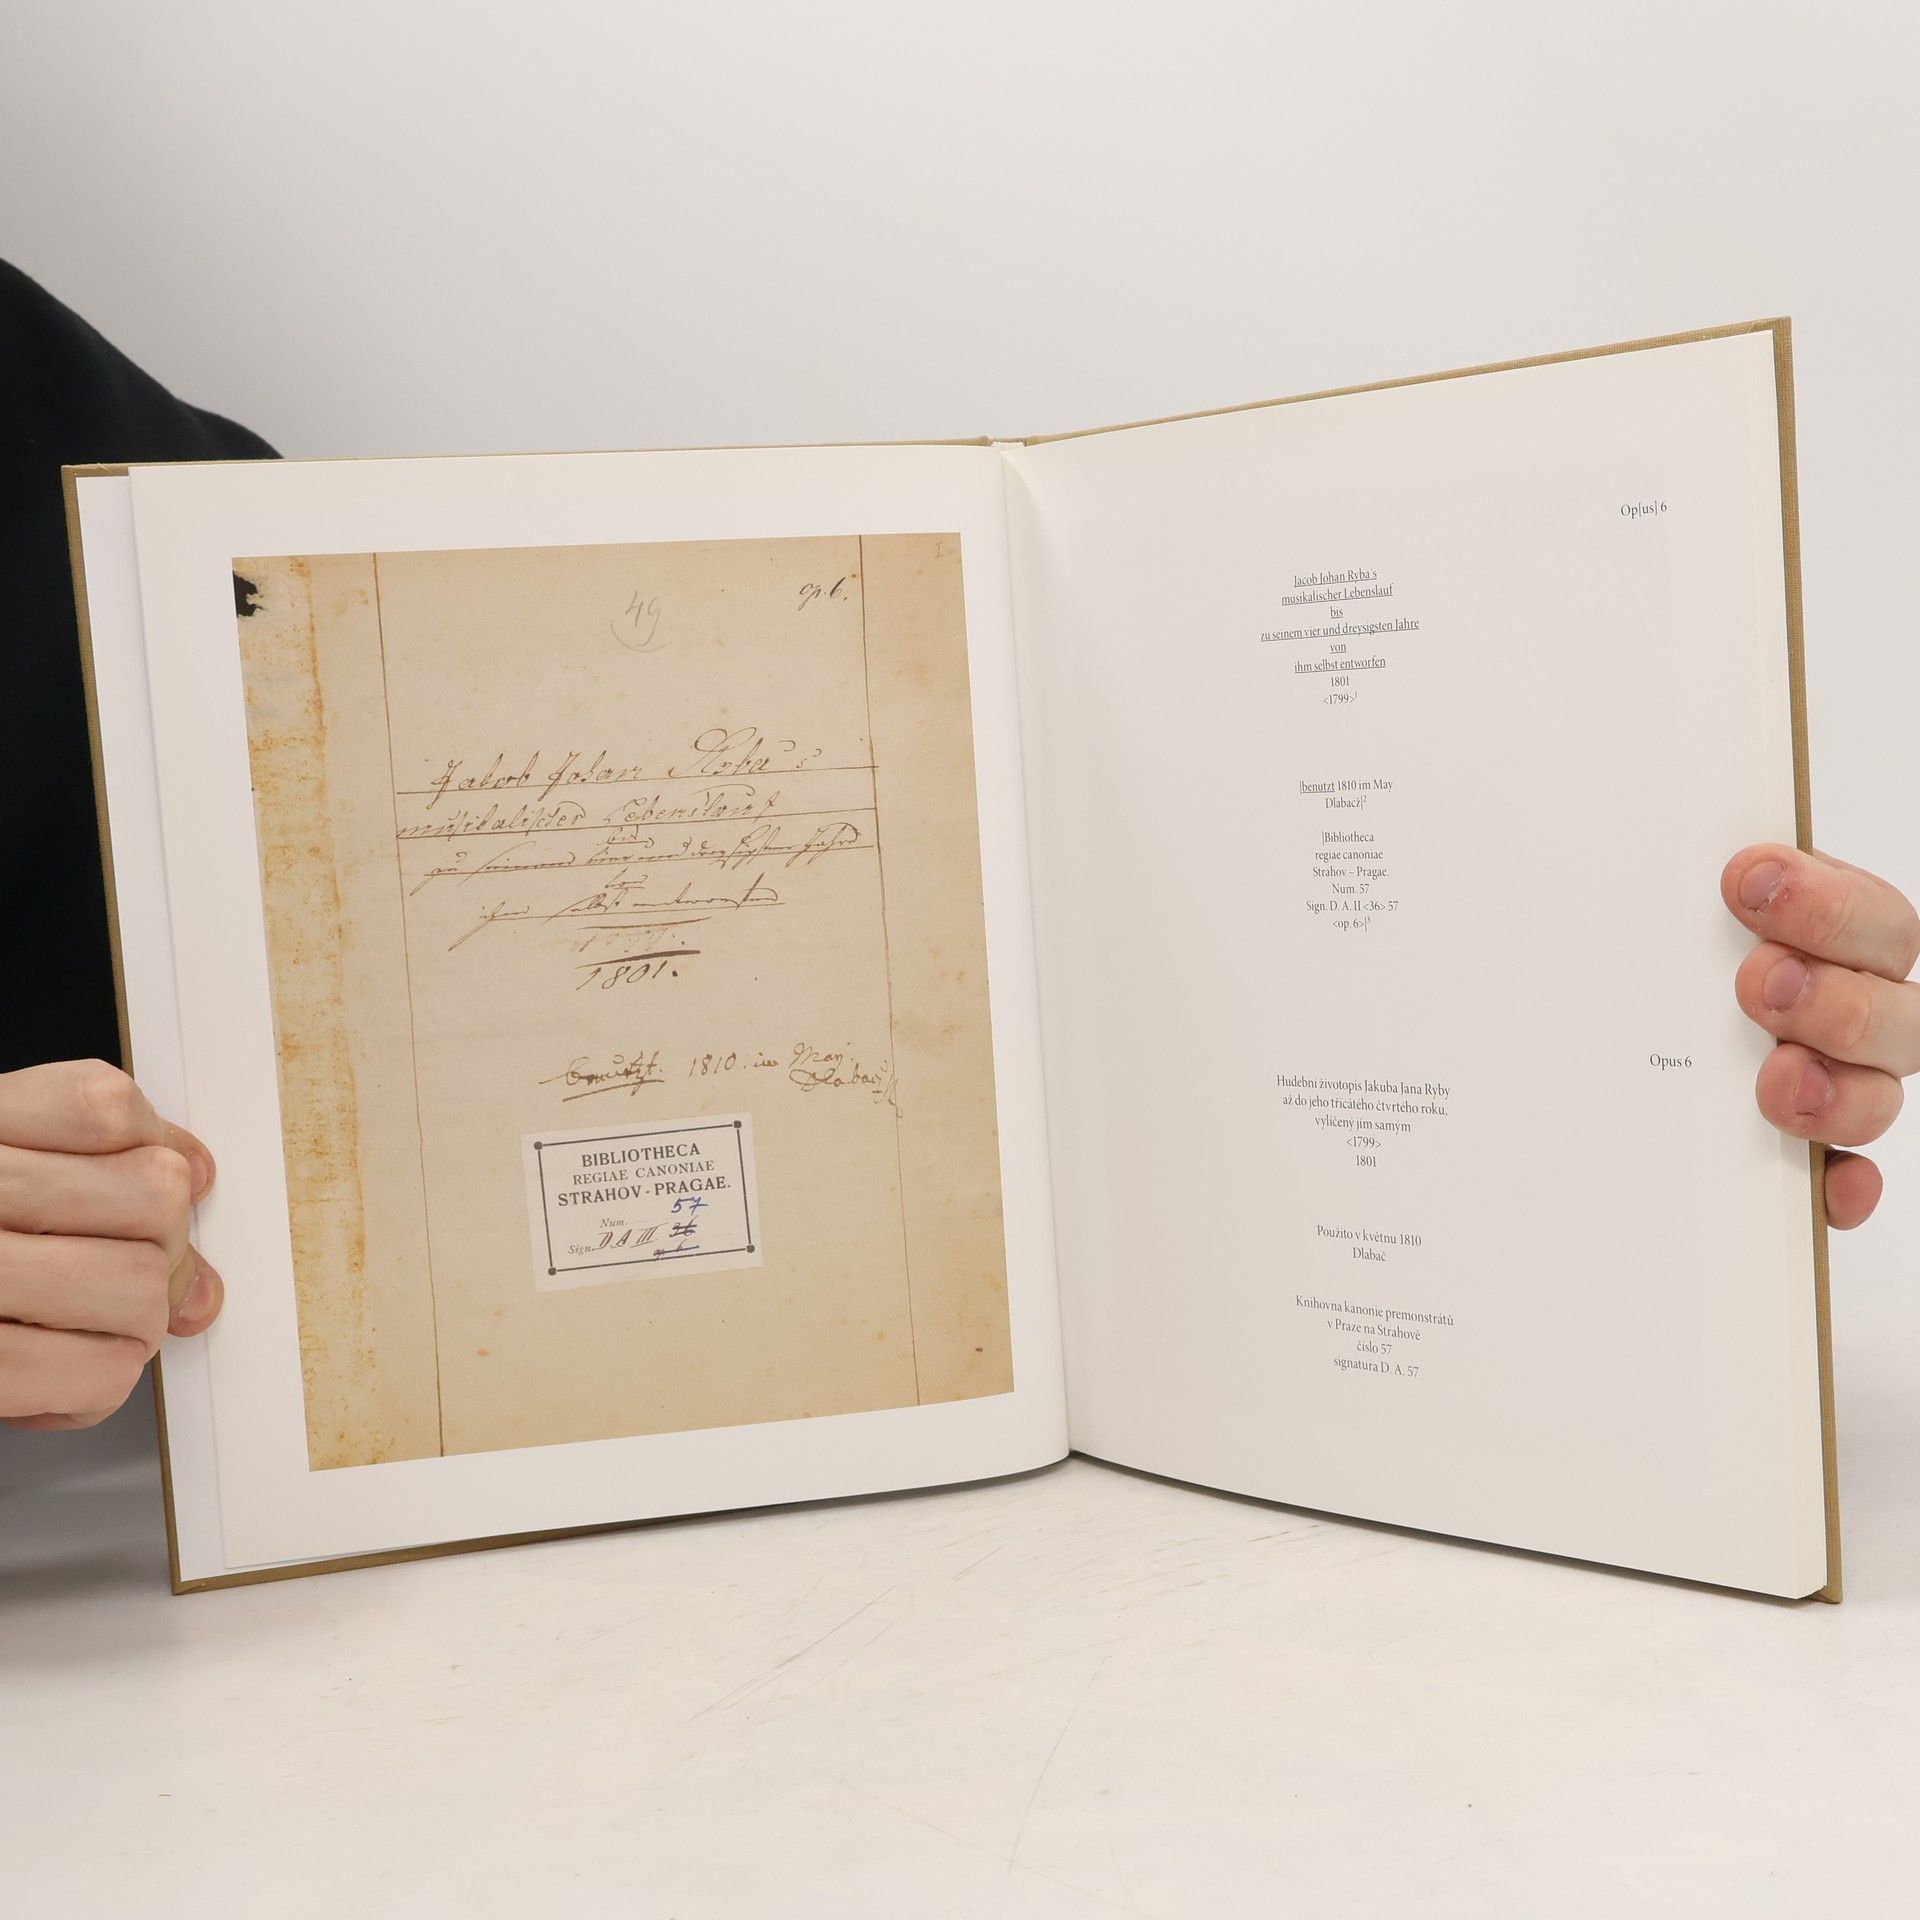 I
op. 6.
49
Jakob Johan Ryba's
musikalischer Lebenslauf
bis
zu seinem vier und dreysigsten Jahre
von
ihm selbst entworfen
1799.
1801.
benutzt. 1810. im May.
Dlabacž
BIBLIOTHECA
REGIAE CANONIAE
STRAHOV - PRAGAE.
57
Num.
Sign. D A III 36
op. 6
Op[us] 6
Jacob Johan Ryba´s
musikalischer Lebenslauf
bis
zu seinem vier und dreysigsten Jahre
von
ihm selbst entworfen
1801
<1799>1
|benutzt 1810 im May
Dlabacž|2
|Bibliotheca
regiae canoniae
Strahov – Pragae.
Num. 57
Sign. D. A. II <36> 57
<op. 6>|3
Opus 6
Hudební životopis Jakuba Jana Ryby
až do jeho třicátého čtvrtého roku,
vylíčený jím samým
<1799>
1801
Použito v květnu 1810
Dlabač
Knihovna kanonie premonstrátů
v Praze na Strahově
číslo 57
signatura D. A. 57